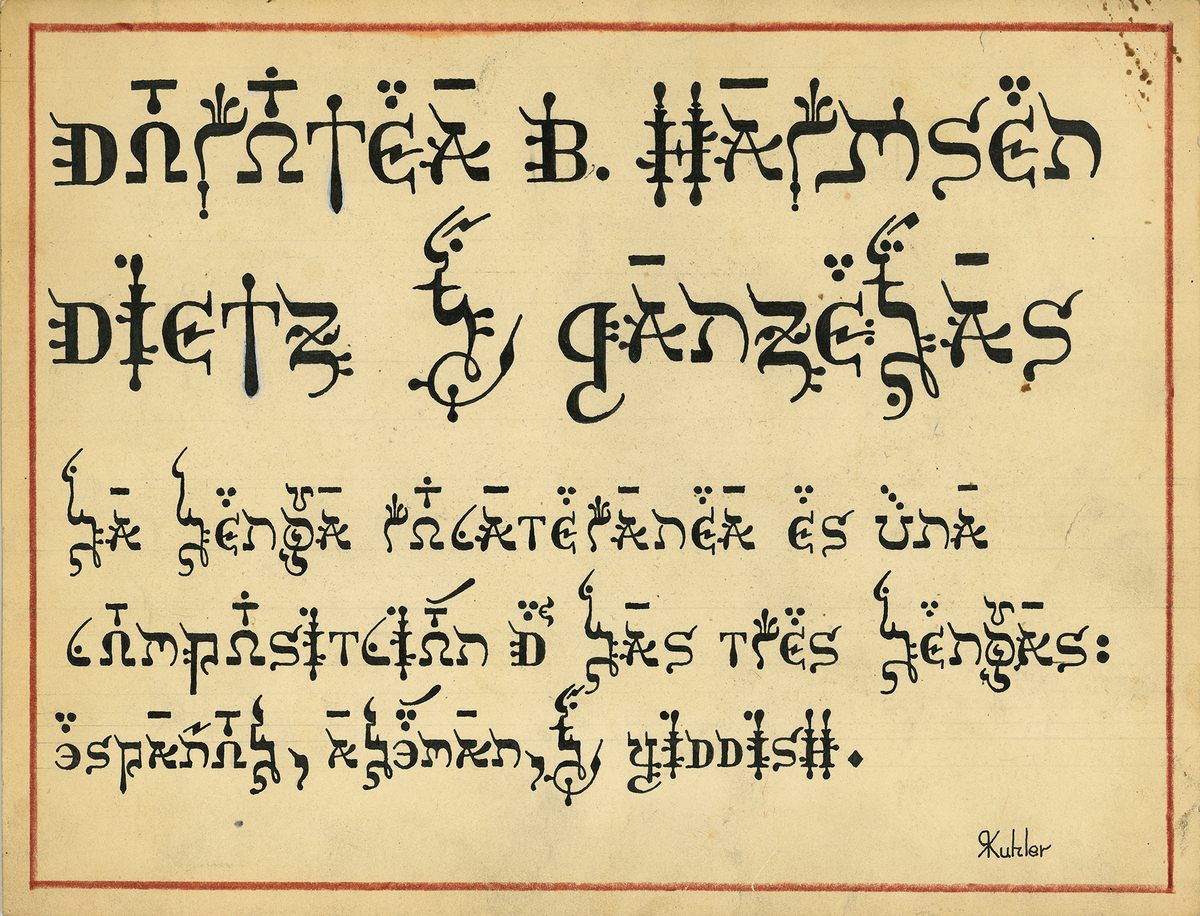 DOROTEA B. HARMSEN
DIETZ Y
LA LENGUA ROCATERANEA ES UNA
COMPOSITCIÓN DE LAS TRES LENGUAS:
ESPAÑOL, ALEMAN, Y YIDDISH.
RKuhler